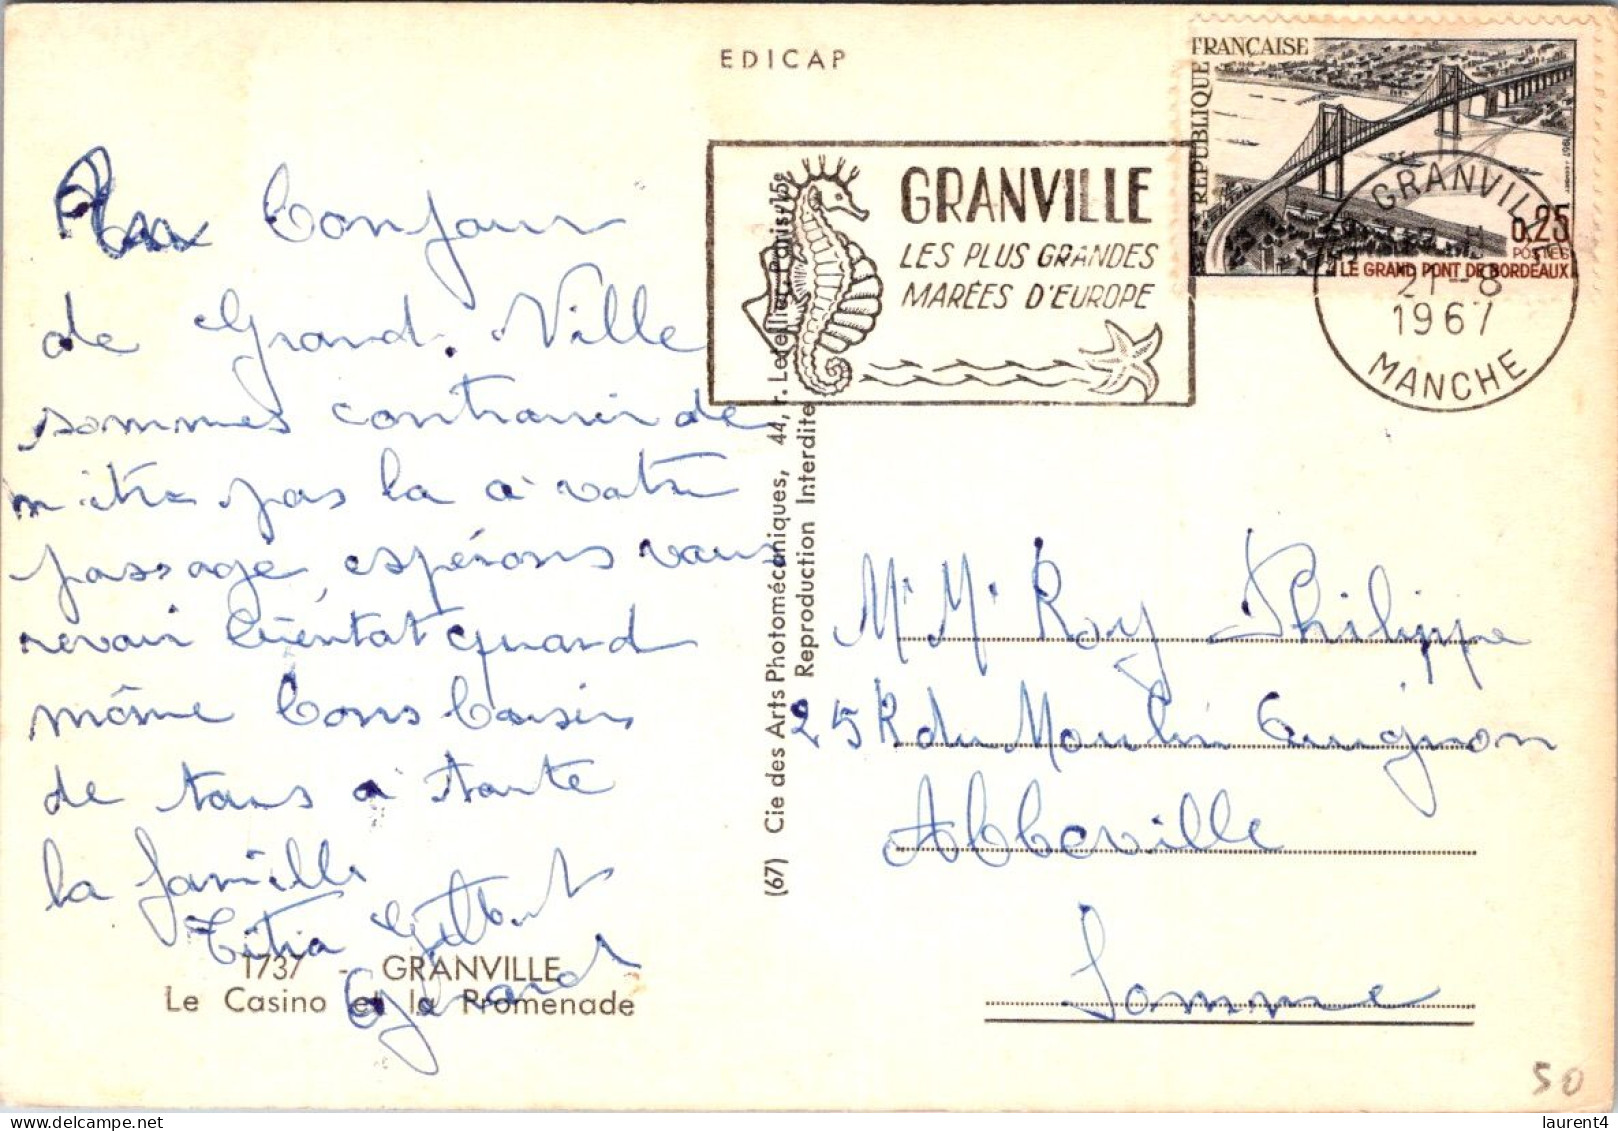 EDICAP
RÉPUBLIQUE FRANÇAISE
0,25
POSTES
LE GRAND PONT DE BORDEAUX
GRANVILLE
LES PLUS GRANDES
MARÉES D'EUROPE
GRANVILLE
21-8
1967
MANCHE
Bonjour
de Grand. Ville
sommes contrarier de
n'être pas la a votre
passage espérons vous
revoir bientot quand
même bons baisers
de tous a toute
la famille
Titia Gilbert
Gérard
1737 - GRANVILLE
Le Casino et la Promenade
(67) Cie des Arts Photomécaniques, 44, r. Letellier, Paris-15e
Reproduction Interdite
Mr Me Roy Philippe
25 R du Moulin Quignon
Abbeville
Somme
50
laurent4